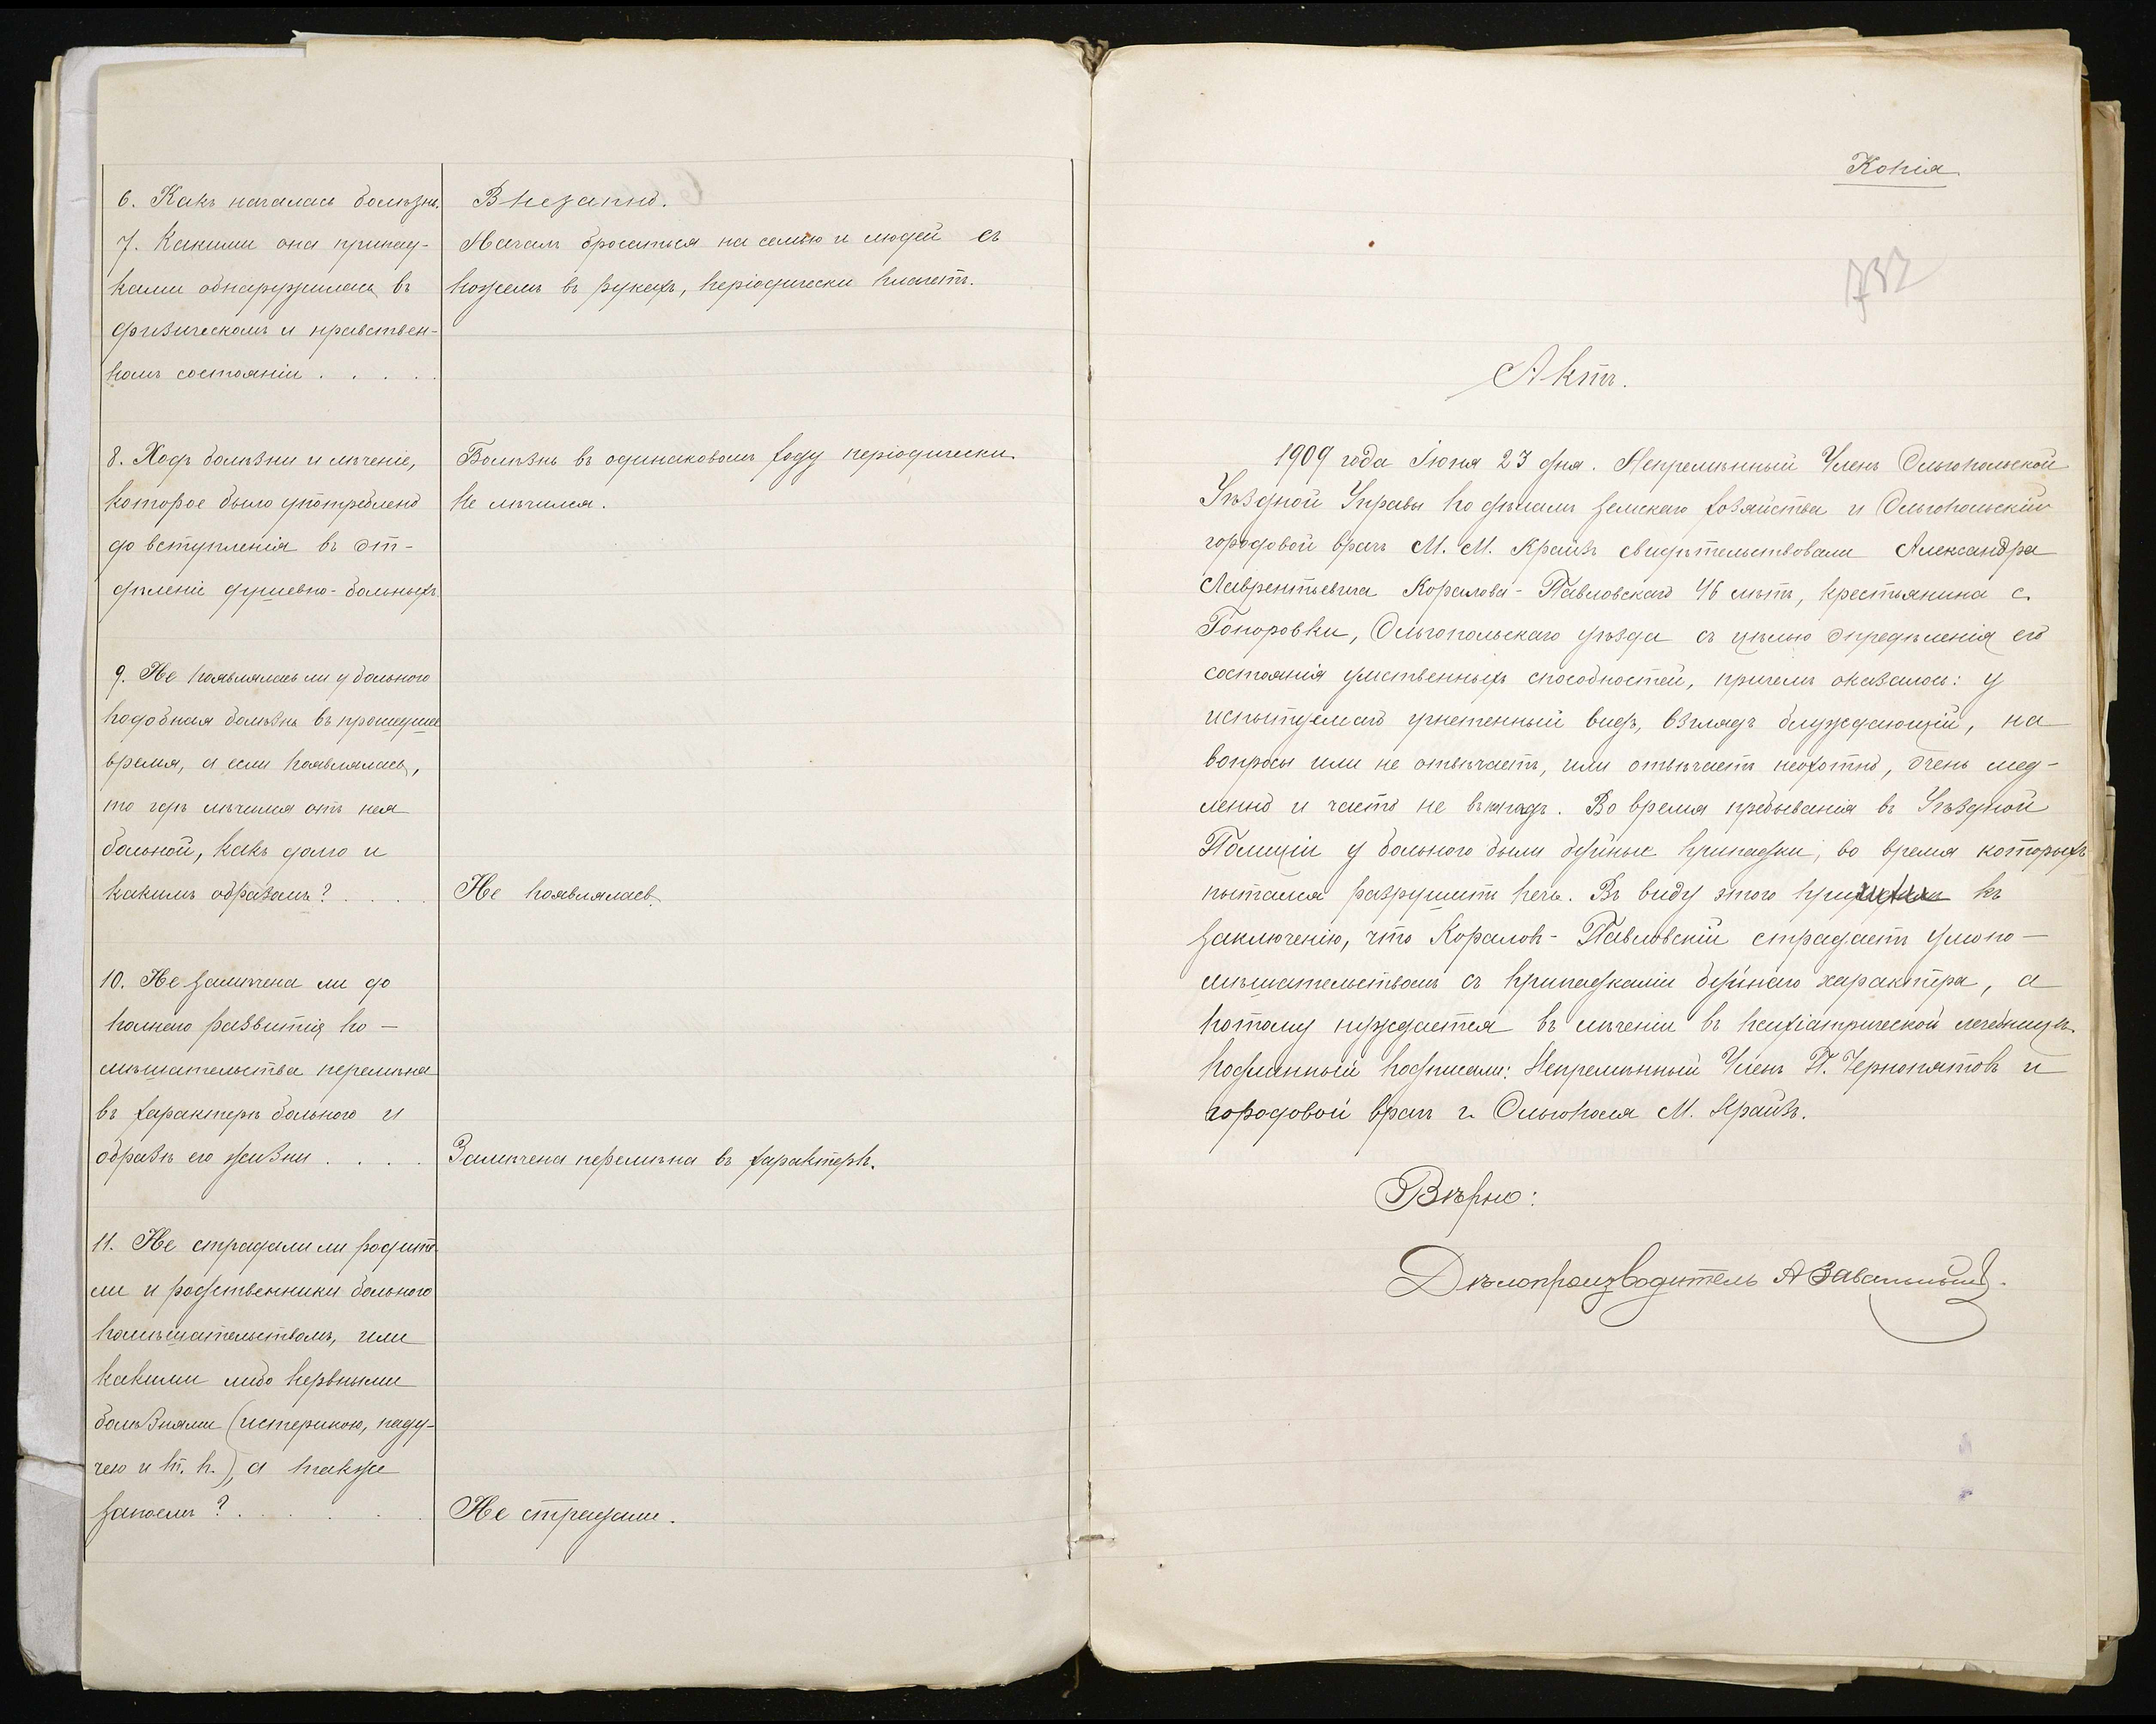 6. Какъ началась болѣзнь.
Внезапно.
7. Какими она припад-
ками обнаружилась въ
физическомъ и нравствен-
номъ состояніи . . . . .
Началъ бросаться на семью и людей съ
ножемъ въ рукахъ, періодически плачетъ.
8. Ходъ болѣзни и лѣченіе,
которое было употреблено
до вступленія въ от-
дѣленіе душевно-больныхъ
Болѣзнь въ одинаковомъ ходу періодически
не лѣчился.
9. Не появлялась ли у больного
подобная болѣзнь въ прошедшее
время, а если появлялась,
то гдѣ лѣчился отъ нея
больной, какъ долго и
какимъ образомъ? . . . .
Не появлялась.
10. Не замѣчена ли до
полнаго развитія по-
мѣшательства перемѣна
въ характерѣ больного и
образѣ его жизни . . . .
Замѣчена перемѣна въ характерѣ.
11. Не страдали ли родите
ли и родственники больного
помѣшательствомъ, или
какими либо нервными
болѣзнями (истерикою, паду-
чею и т. п.), а также
запоемъ? . . . . .
Не страдали.
Копія
732
Актъ.
1909 года Іюня 23 дня. Непремѣнный Членъ Ольгопольской
Уѣздной Управы по дѣламъ земскаго хозяйства и Ольгопольскій
городовой врачъ М. М. Крайзъ свидѣтельствовали Александра
Лаврентьевича Коралова-Павловскаго 46 лѣтъ, крестьянина с.
Гоноровки, Ольгопольскаго уѣзда съ цѣлью опредѣленія его
состоянія умственныхъ способностей, причемъ оказалось: у
испытуемаго угнетенный видъ, взглядъ блуждающій, на
вопросы или не отвѣчаетъ, или отвѣчаетъ неохотно, очень мед-
ленно и часто не въ ладъ. Во время пребыванія въ Уѣздной
Полиціи у больного были буйные припадки, во время которыхъ
пытался разрушить печь. Въ виду этого пришли къ
заключенію, что Коралов-Павловскій страдаетъ умопо-
мѣшательствомъ съ припадками буйнаго характера, а
потому нуждается въ лѣченіи въ психіатрической лечебницѣ.
Подлинный подписали: Непремѣнный Членъ П. Чернопятовъ и
городовой врачъ г. Ольгополя М. Крайзъ.
Вѣрно:
Дѣлопроизводитель А